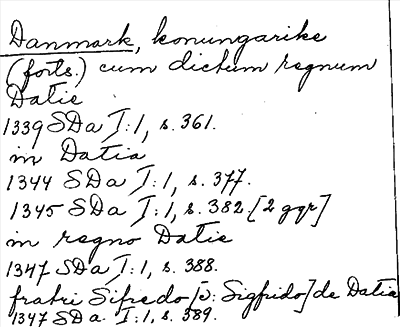 Danmark, konungarike
(forts.) cum dictum regnum
Datie
1339 SDa I:1, s. 361.
in Datia
1344 SDa I:1, s. 377.
1345 SDa I:1, s. 382. [2 ggr]
in regno Datie
1347 SDa I:1, s. 388.
fratri Sifredo [ɔ: Sigfrido] de Datia
1347 SDa. I:1, s. 389.